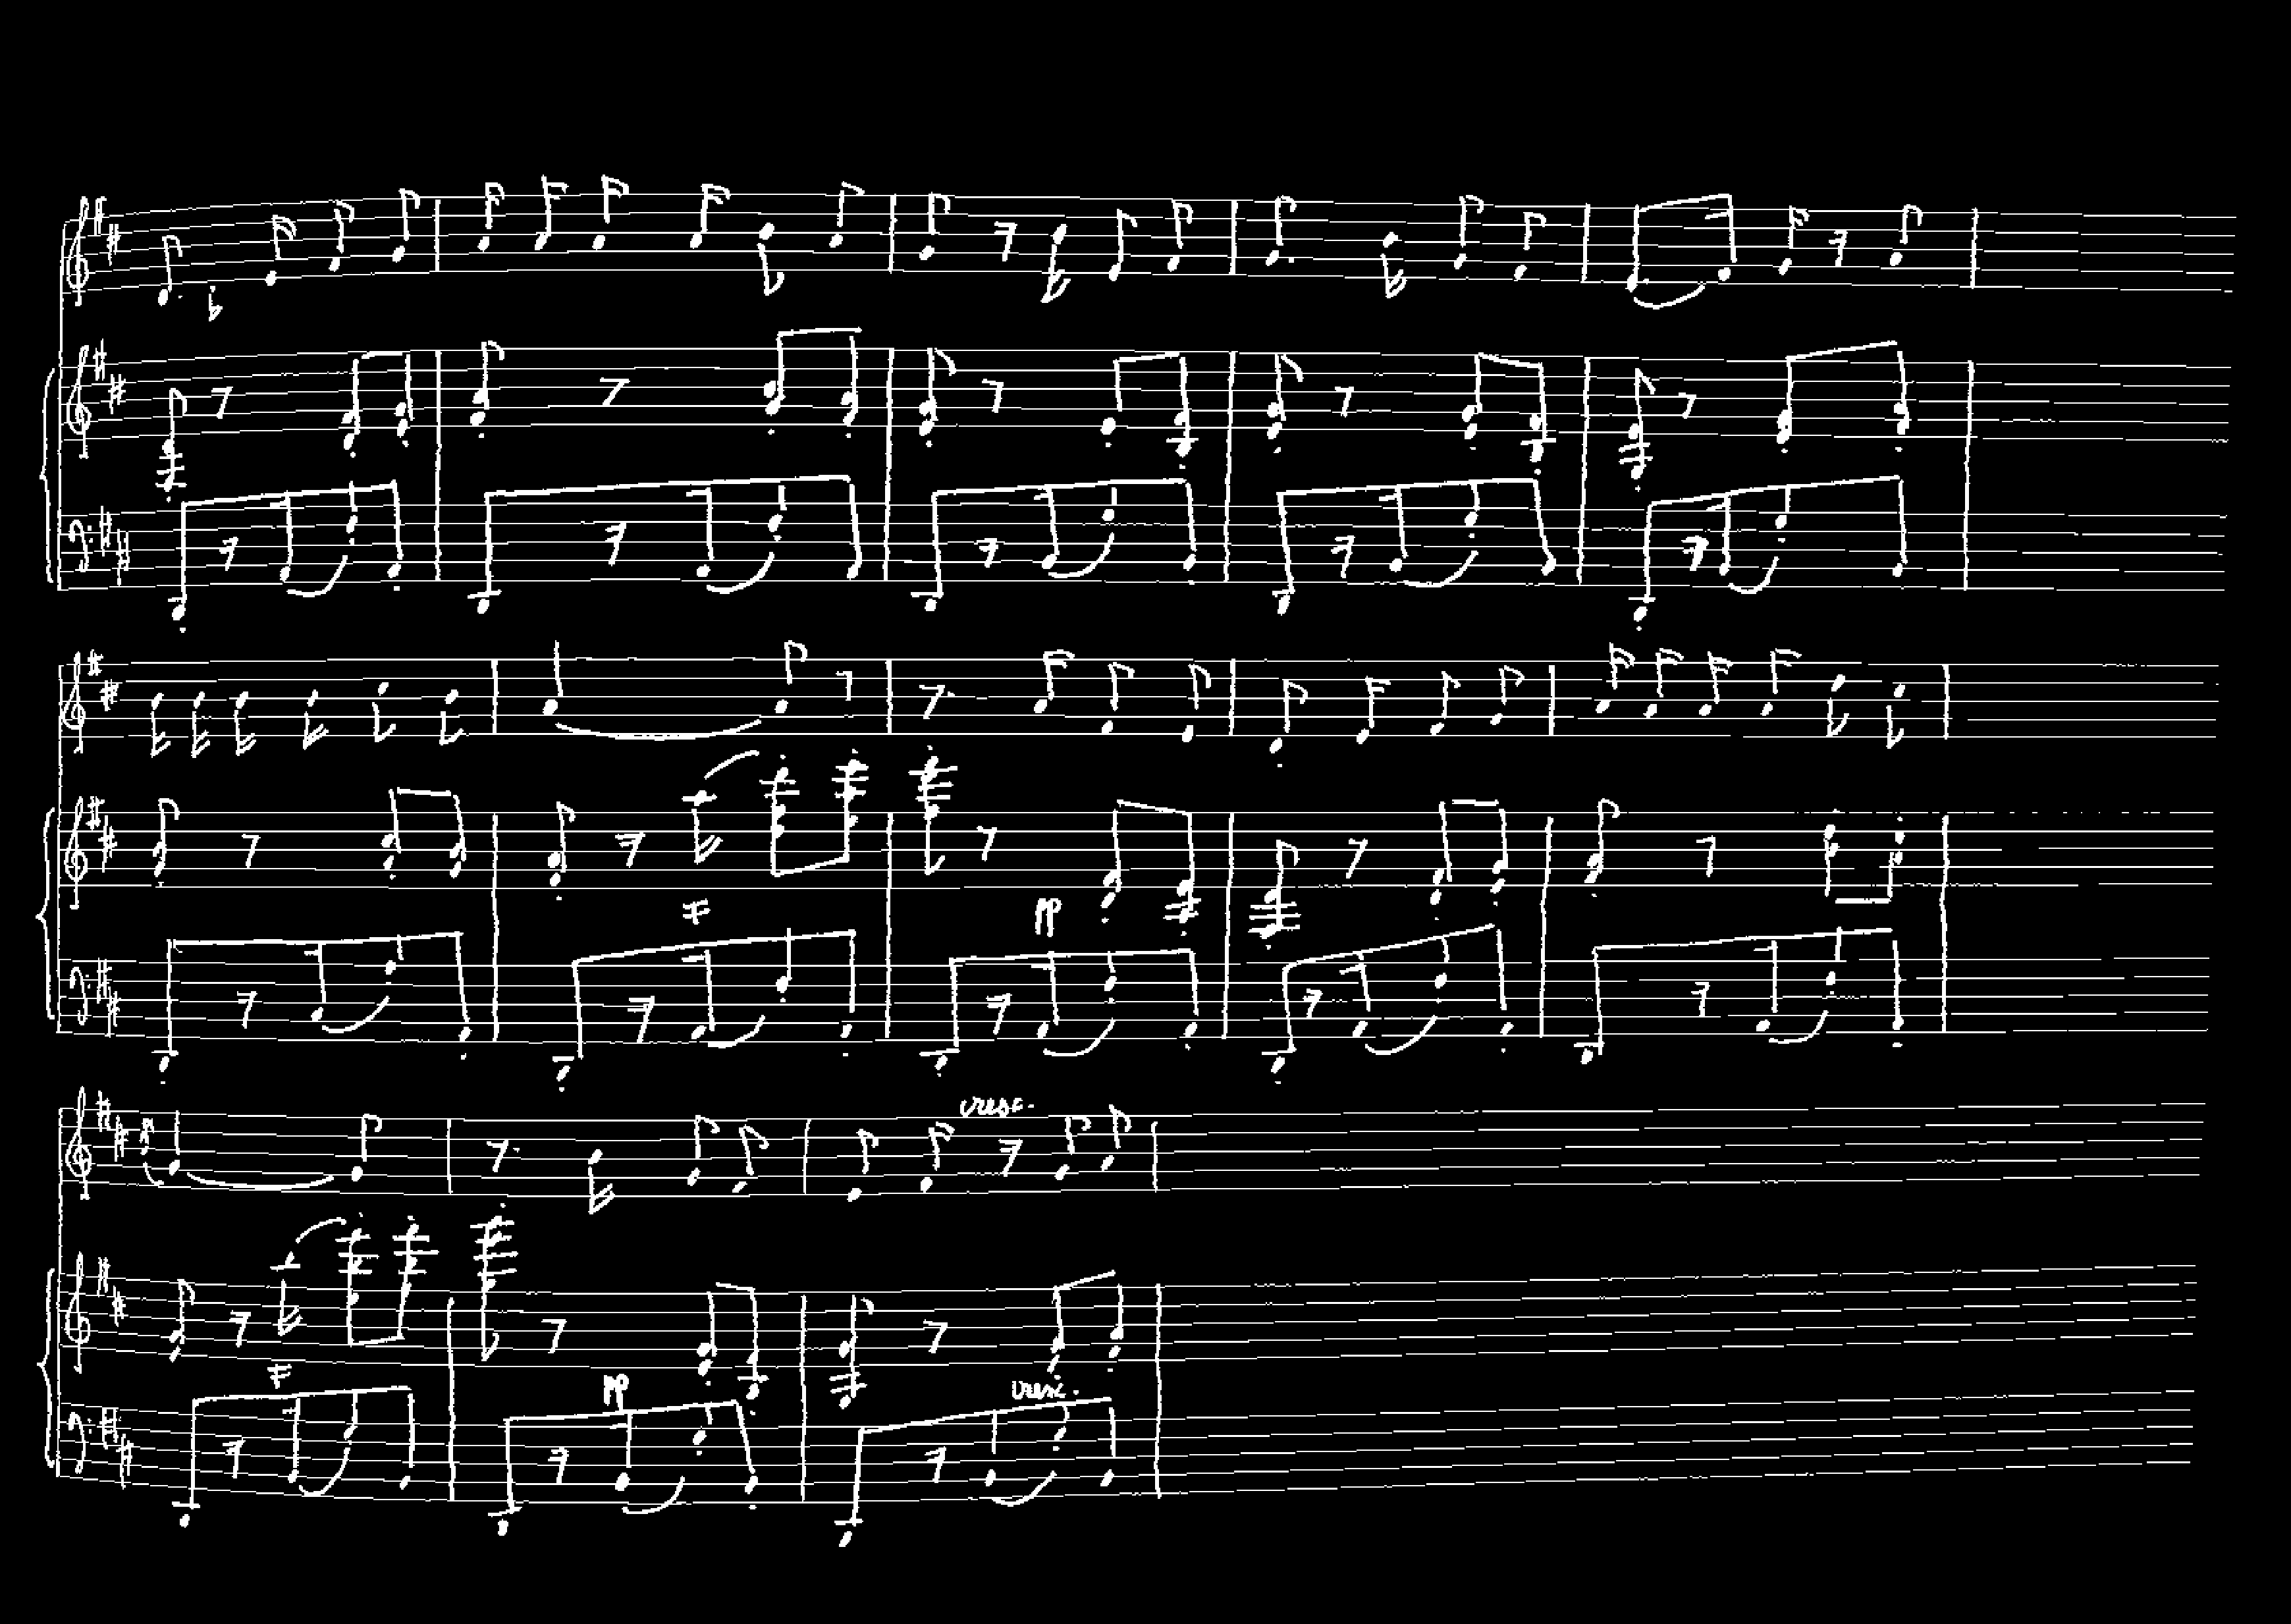 F
pp
cresc.
F
pp
cresc.